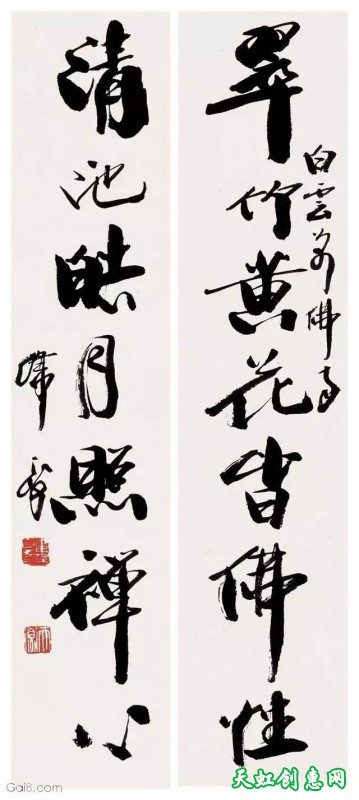 翠竹黄花皆佛性
白雲
佛
清池皓月照禪心
Gai8.com
天虹创意网